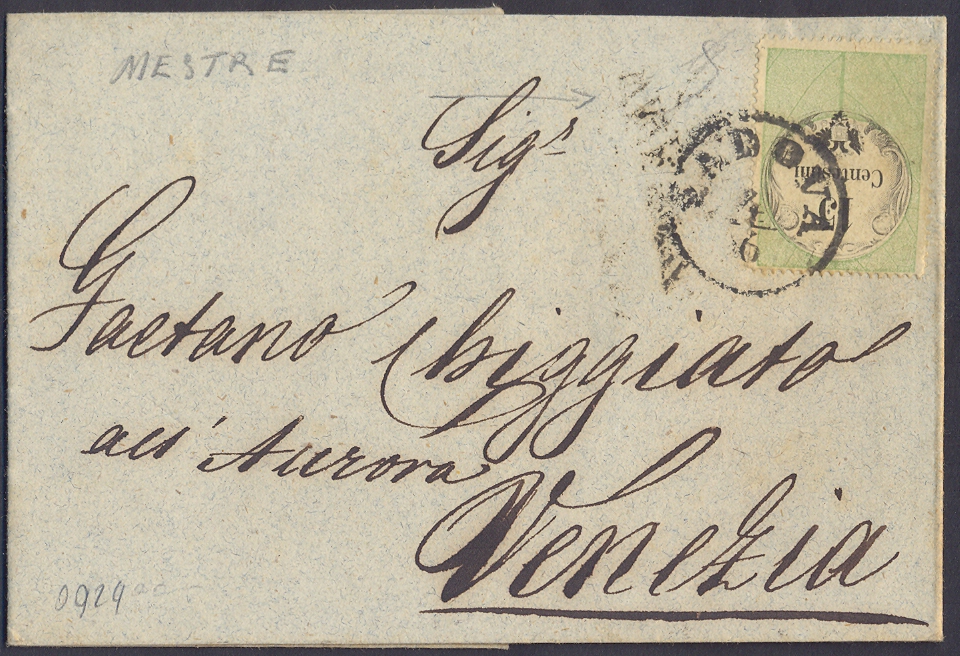 MESTRE
Sigr
Gaetano Chiggiato
all' Aurora
Venezia
PADOVA
6
Centesimi
0929